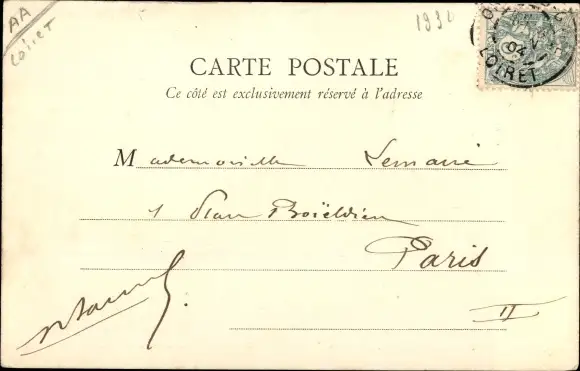 AA
Loiret
1930
04
LOIRET
CARTE POSTALE
Ce côté est exclusivement réservé à l'adresse
Mademoiselle Lemaire
1 Place Boïeldieu
Paris
II